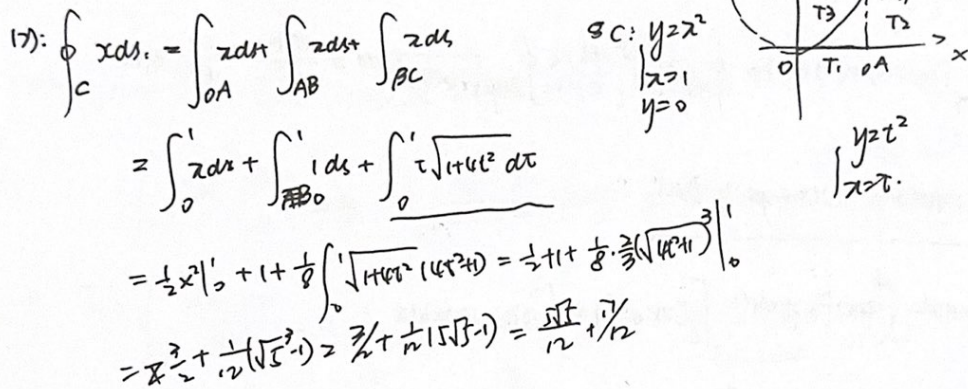 (2): ∮_C xds. = ∫_{OA} xds+ ∫_{AB} xds+ ∫_{BC} xds
8 C: y=x²
x=1
y=0
T3
T3
O T. 0A x
= ∫_0^1 xdx + ∫_0^1 1ds + ∫_0^1 t√(1+4t²) dt
y=t²
x=t.
= ½x²|_0^1 + 1 + ⅛∫_0^1 √(1+4t²) (4t²+1) = ½+1+ ⅛·⅔(√(4t²+1))³|_0^1
= 3/2 + 1/12(√5³-1) = 3/2 + 1/12(5√5-1) = 5√5/12 + 17/12